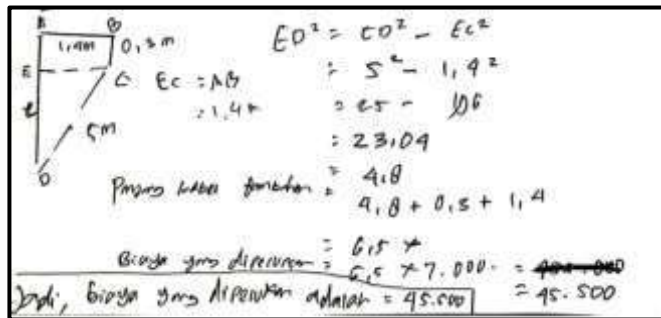 A B
1,4m 0,3m
E C
Ec = AB
= 1,4
5m
D
ED² = CD² - Ec²
= 5² - 1,4²
= 25 -
= 23,04
= 4,8
Panjang kabel = 4,8 + 0,3 + 1,4
= 6,5
Biaya yang diperlukan = 6,5 x 7.000. =
= 45.500
Jadi, biaya yang diperlukan adalah = 45.500